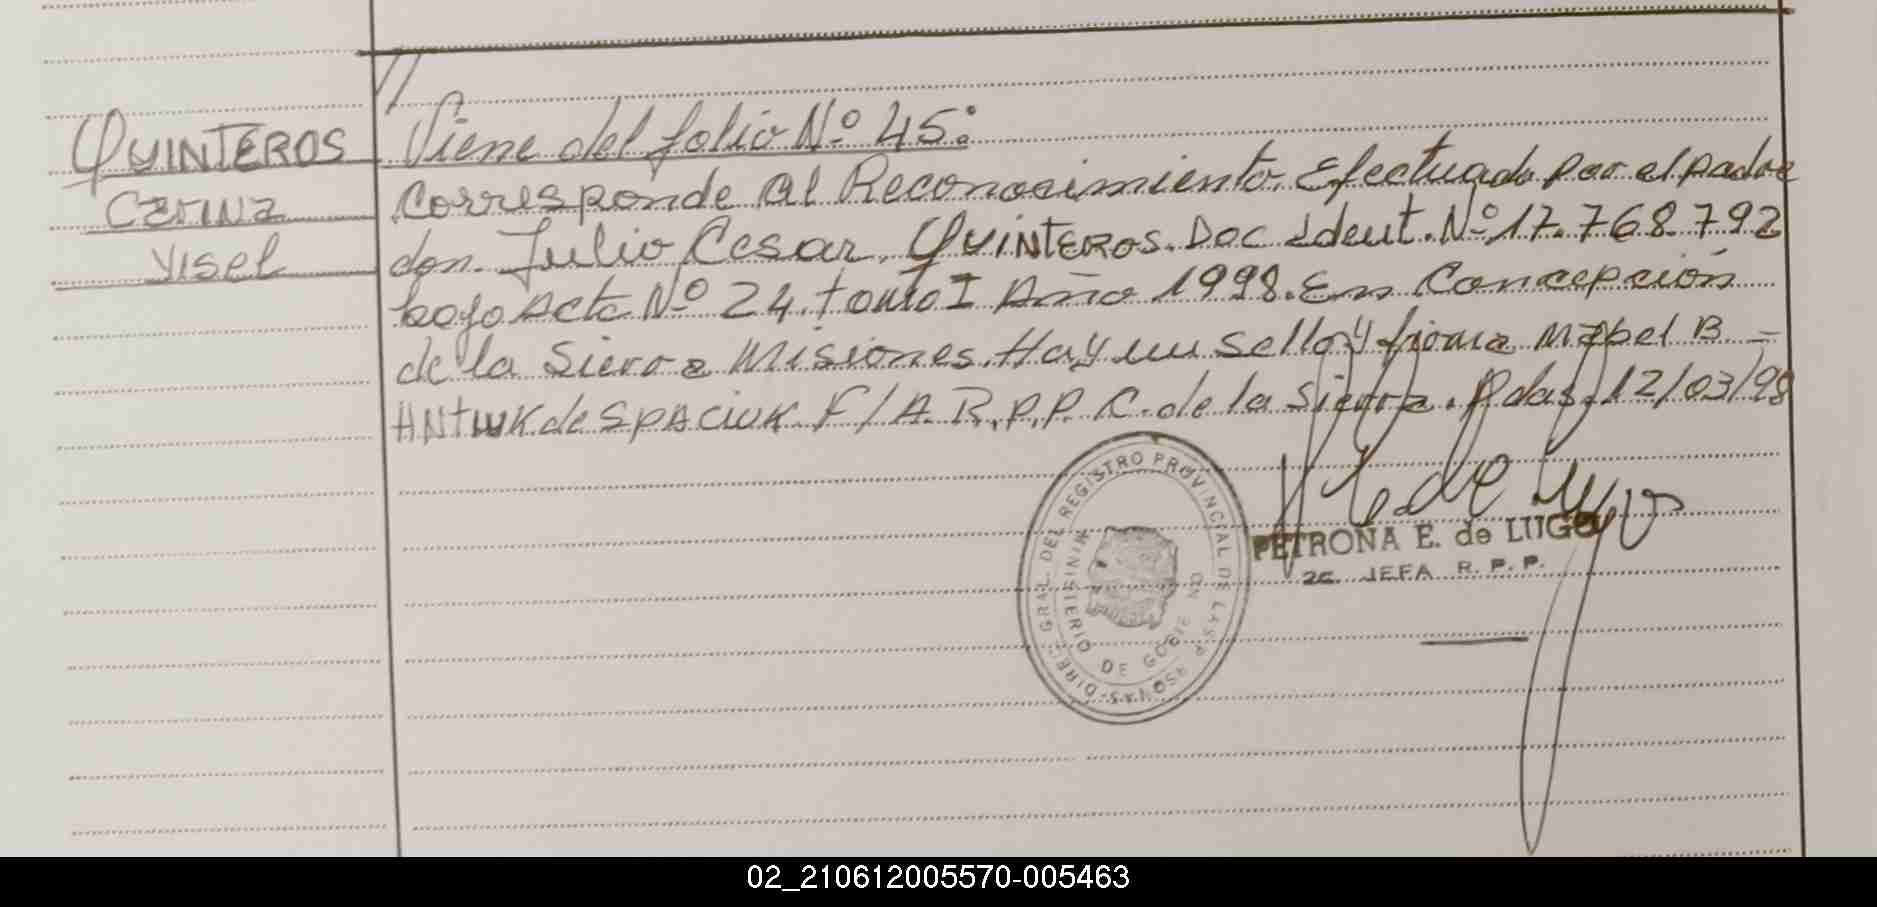 QUINTEROS
CARINA
YISEL
Viene del folio Nº 45:
Corresponde al Reconocimiento. Efectuado por el padre
don. Julio Cesar. QUINTEROS. Doc. Ident. Nº 17.768.792
bajo Acta Nº 24. tomo I Año 1998. En Concepción
de la Sierra Misiones. Hay un sello y firma Mabel B. -
de SPACIUK. F/A. R.P.P. C. de la Sierra. Pdas. 12/03/98
DIREC. GRAL. DEL REGISTRO PROVINCIAL DE LAS PERSONAS
MINISTERIO DE GOBIERNO
PETRONA E. de LUGO
2ª. JEFA R. P. P.
02_210612005570-005463